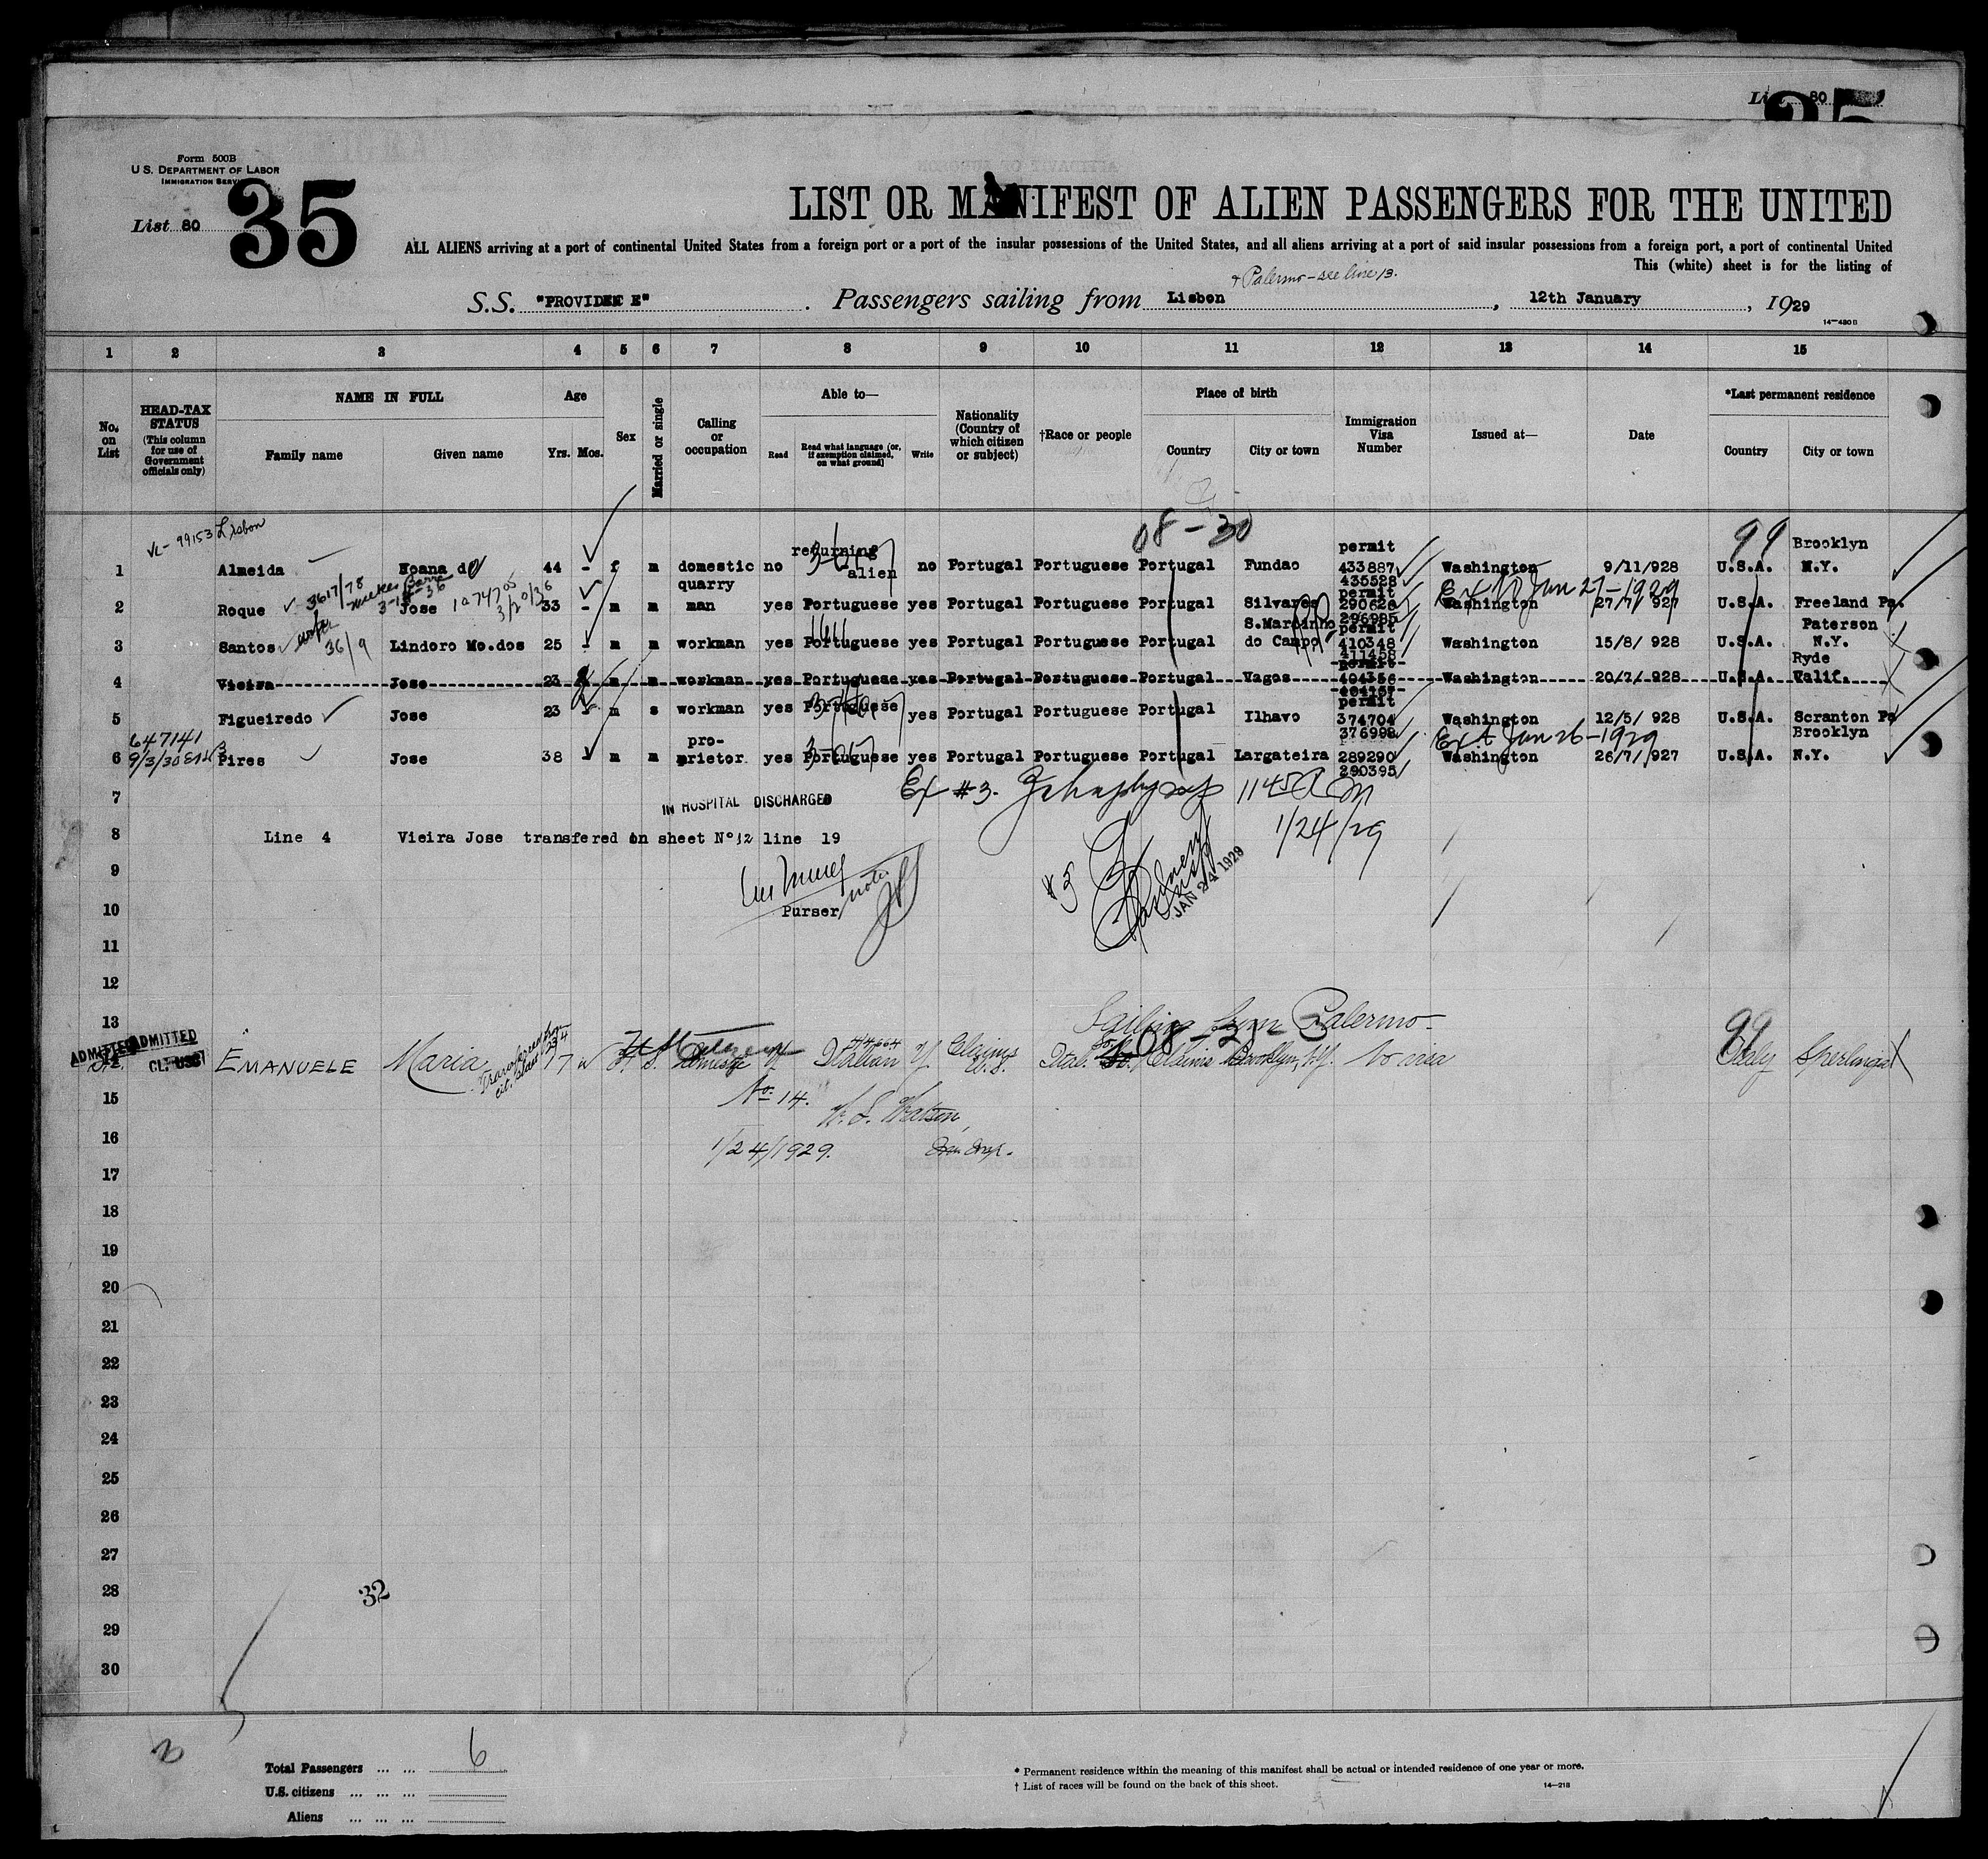 List 80
Form 500B
U.S. DEPARTMENT OF LABOR
IMMIGRATION SERVICE
List 80
35
LIST OR MANIFEST OF ALIEN PASSENGERS FOR THE UNITED
ALL ALIENS arriving at a port of continental United States from a foreign port or a port of the insular possessions of the United States, and all aliens arriving at a port of said insular possessions from a foreign port, a port of continental United
This (white) sheet is for the listing of
+ Palermo - see line 13.
S.S. "PROVIDENCE". Passengers sailing from Lisbon, 12th January, 1929
14-430B
1 2 3 4 5 6 7 8 9 10 11 12 13 14 15
No. on List
HEAD-TAX STATUS (This column for use of Government officials only)
NAME IN FULL
Family name Given name
Age
Yrs. Mos.
Sex
Married or single
Calling or occupation
Able to—
Read Read what language [or, if exemption claimed, on what ground] Write
Nationality (Country of which citizen or subject)
†Race or people
Place of birth
Country City or town
Immigration Visa Number
Issued at—
Date
*Last permanent residence
Country City or town
VL-99153 Lisbon
08-30
99
1 Almeida Noana do 44 - f m domestic no returning alien no Portugal Portuguese Portugal Fundao permit 433887 435528 Washington 9/11/928 U.S.A. Brooklyn N.Y.
3617/78 3-18-36 1074705 3/20/36
2 Roque Jose 33 - m m quarry man yes Portuguese yes Portugal Portuguese Portugal Silvares permit 290628 296985 Washington 27/7/ 927 U.S.A. Freeland Pa.
Jun 27-1929
36/9
3 Santos Lindoro Mo.dos 25 - m m workman yes Portuguese yes Portugal Portuguese Portugal S.Marcinho do Campo permit 410348 411458 Washington 15/8/ 928 U.S.A. Paterson N.Y.
4 Vieira Jose 23 m m workman yes Portuguese yes Portugal Portuguese Portugal Vagos permit 404356 Washington 20/7/ 928 U.S.A. Ryde Valif.
5 Figueiredo Jose 23 - m s workman yes Portuguese yes Portugal Portuguese Portugal Ilhavo permit 374704 376998 Washington 12/5/ 928 U.S.A. Scranton Pa
647141
9/3/30
Jun 26-1929
6 Pires Jose 38 - m m proprietor yes Portuguese yes Portugal Portuguese Portugal Largateira 289290 290395 Washington 26/7/ 927 U.S.A. Brooklyn N.Y.
7
IN HOSPITAL DISCHARGED
Ex #3. 1145 AM
1/24/29
8 Line 4 Vieira Jose transfered on sheet No 12 line 19
9
JAN 24 1929
10 Purser
11
12
13 Sailing from Palermo-
ADMITTED ADMITTED
08-21
99
EMANUELE Maria 17 S. Domestic Y Italian Y. Claims U.S. Ital. So. Claims Brooklyn, N.Y. No visa Italy Sperlinga
15 No 14.
16 1/24/1929.
17
18
19
20
21
22
23
24
25
26
27
28 32
29
30
Total Passengers ... ... 6
U.S. citizens ... ... ...
Aliens ... ... ...
* Permanent residence within the meaning of this manifest shall be actual or intended residence of one year or more.
† List of races will be found on the back of this sheet.
14-218